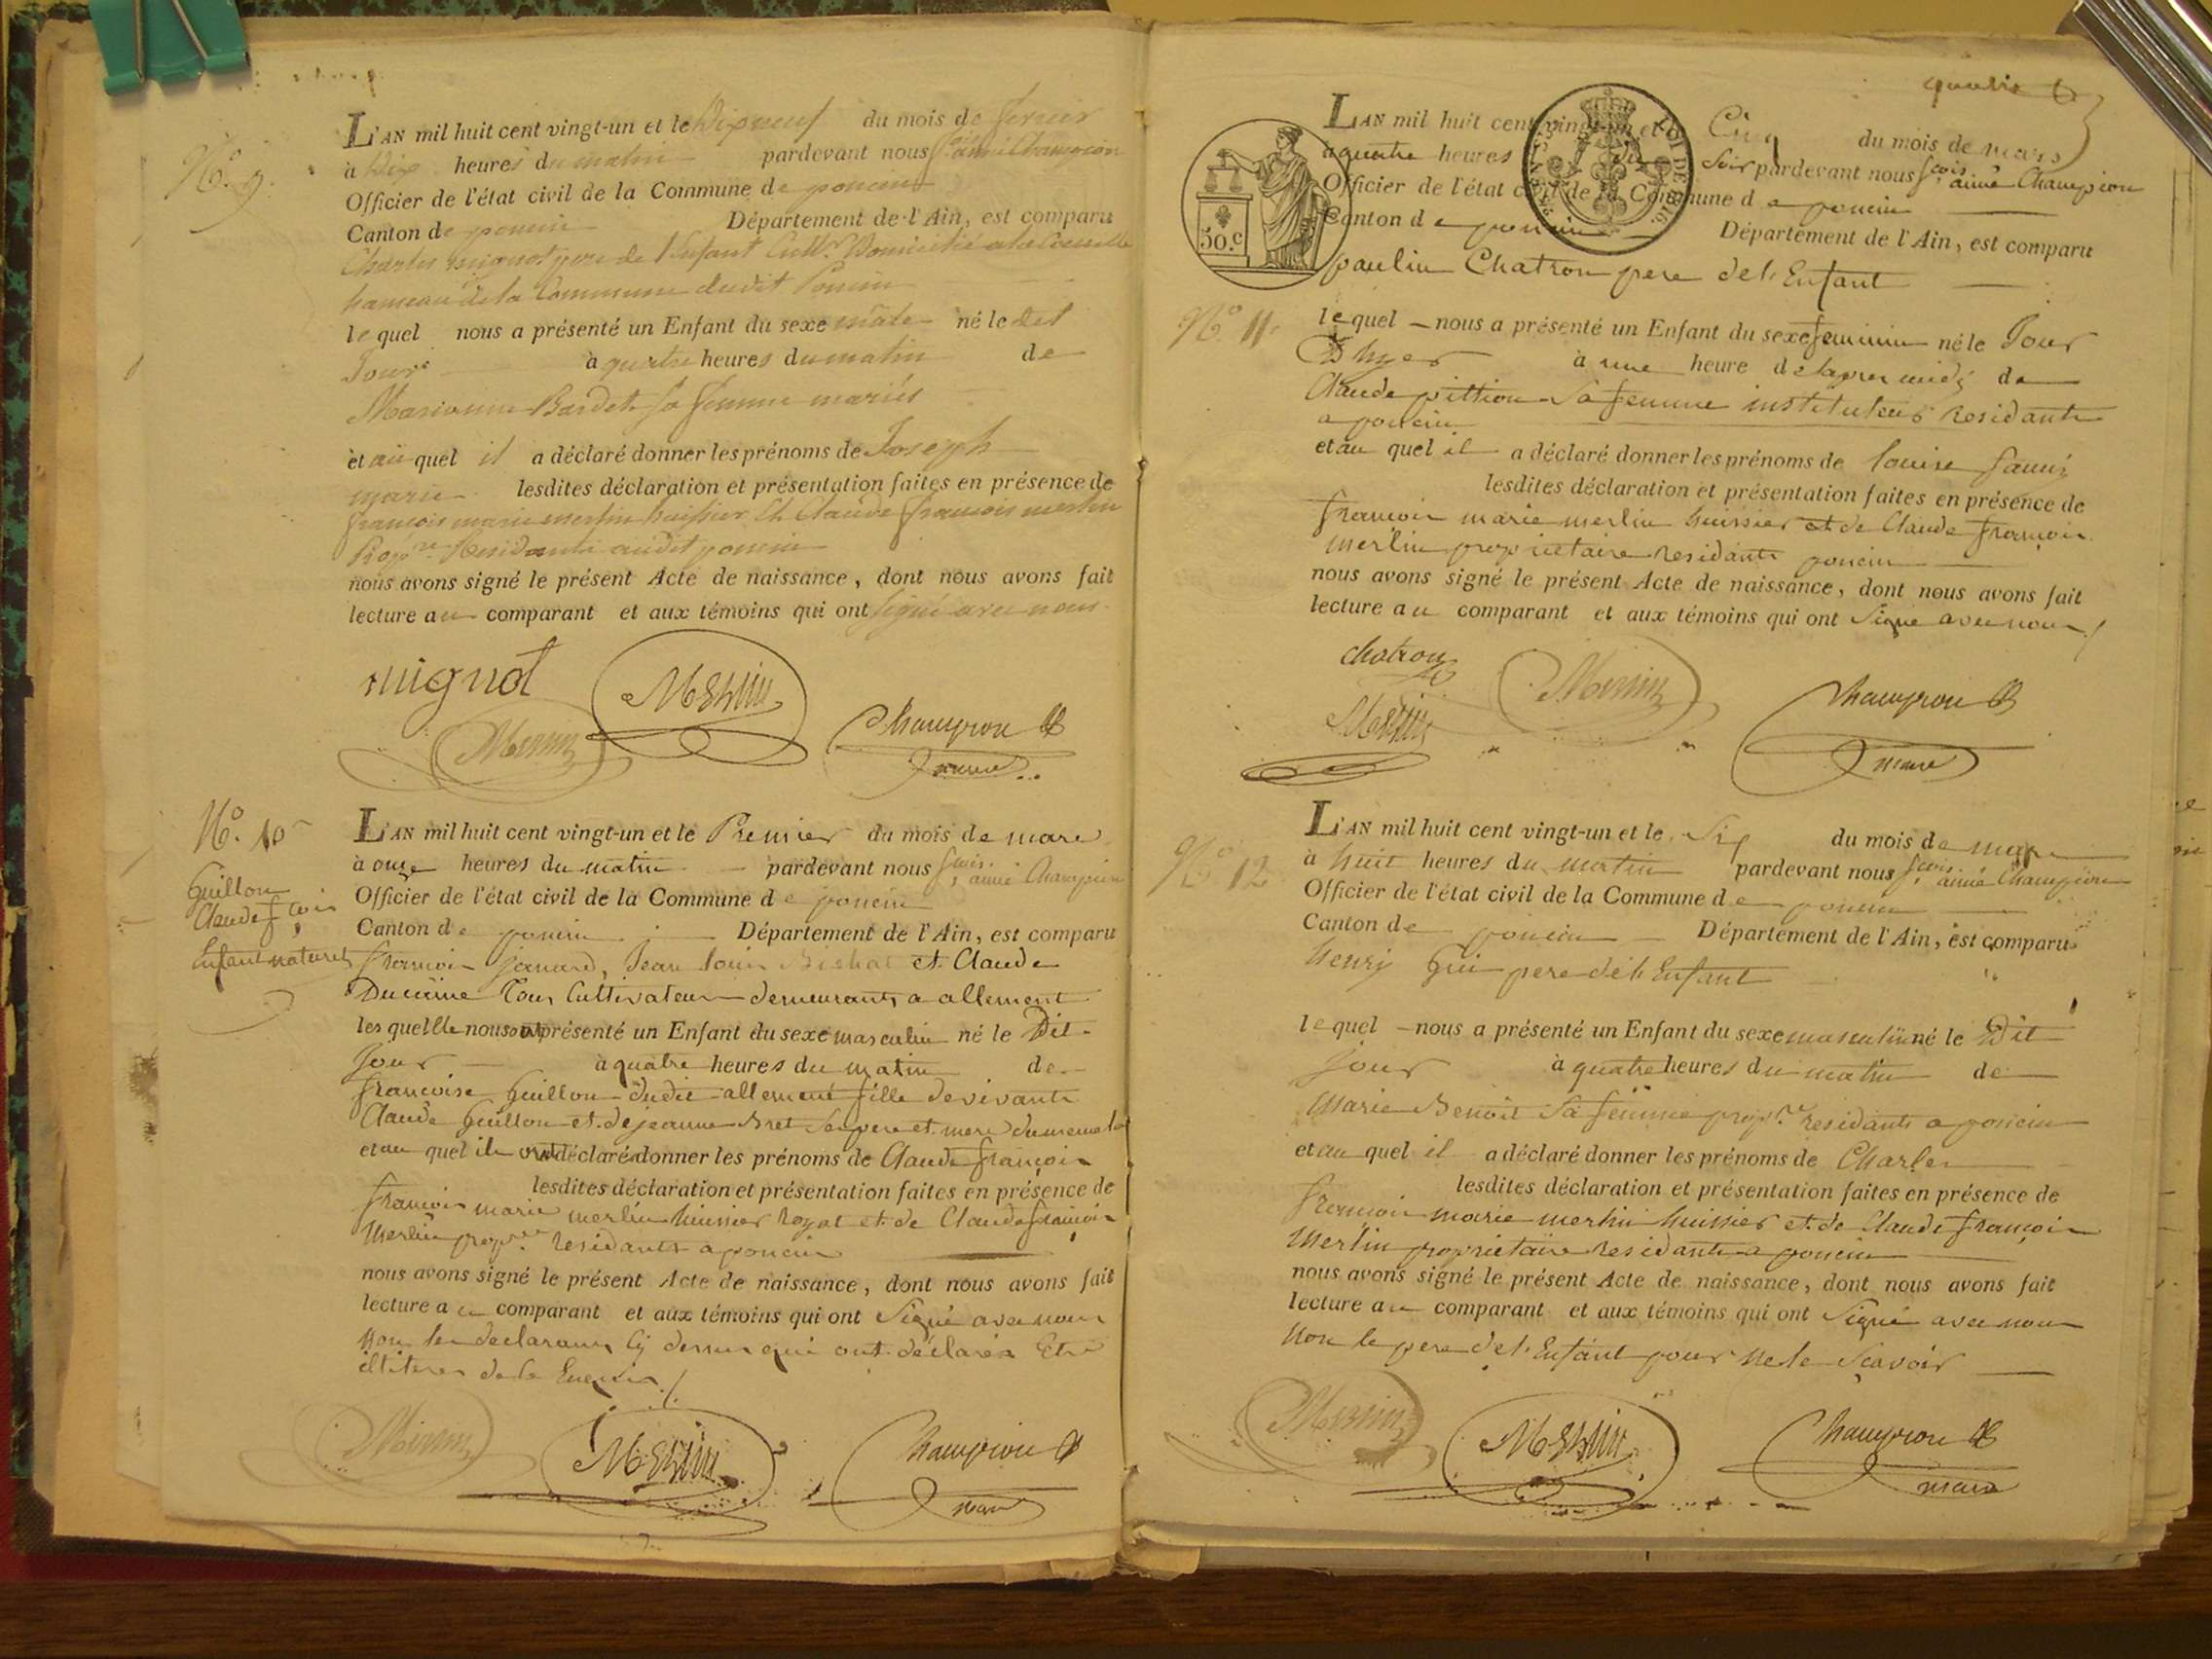 N.o 9.
L'AN mil huit cent vingt-un et le Dixneuf du mois de fevrier
à Dix heures du matin pardevant nous f.cois aimé Champion
Officier de l'état civil de la Commune de poncin
Canton de poncin Département de l'Ain, est comparu
Charles mignot pere de l'Enfant Cult.r Domicilié a la
hameau de la Commune dudit Poncin
le quel nous a présenté un Enfant du sexe mâle né le dit
Jour à quatre heures du matin de
Marianne Bardet sa femme mariés
et au quel il a déclaré donner les prénoms de Joseph
marie lesdites déclaration et présentation faites en présence de
françois marie merlin huissier Et Claude françois merlin
Prop.re Residants audit poncin
nous avons signé le présent Acte de naissance, dont nous avons fait
lecture au comparant et aux témoins qui ont signé avec nous
mignot
Merlin
Merlin
Champion
maire
N.o 10
Guillon
Claude f.cois
Enfant naturel
L'AN mil huit cent vingt-un et le Premier du mois de mars
à onze heures du matin pardevant nous f.cois aimé Champion
Officier de l'état civil de la Commune de poncin
Canton de poncin Département de l'Ain, est comparu
françois janard, Jean louis Bichat et Claude
Ducime Tous Cultivateurs demeurants a allement
les quels nous ont présenté un Enfant du sexe masculin né le Dit
Jour à quatre heures du matin de
françoise Guillon dudit allement fille de vivants
Claude Guillon et de jeanne Bret ses pere et mere du meme
et au quel ils ont déclarés donner les prénoms de Claude françois
lesdites déclaration et présentation faites en présence de
françois marie merlin huissier Royal et de Claude françois
Merlin prop.re residants a poncin
nous avons signé le présent Acte de naissance, dont nous avons fait
lecture au comparant et aux témoins qui ont Signé avec nous
non les declarants Cy dessus qui ont déclarés Etre
illiteres de le Enquis ./.
Merlin
Merlin
Champion
maire
50.c
LOI DE 1816
L'AN mil huit cent vingt-un et le Cinq du mois de mars
à quatre heures du Soir pardevant nous f.cois aimé Champion
Officier de l'état civil de la Commune de poncin
Canton de poncin Département de l'Ain, est comparu
paulin Chatron pere de l'Enfant
N.o 11.
le quel nous a présenté un Enfant du sexe feminin né le Jour
D'hyer à une heure de lapres midy de
Claude pittion Sa femme instituteurs residants
a poncin
et au quel il a déclaré donner les prénoms de louise fanny
lesdites déclaration et présentation faites en présence de
françois marie merlin huissier et de Claude françois
Merlin proprietaire residants poncin
nous avons signé le présent Acte de naissance, dont nous avons fait
lecture au comparant et aux témoins qui ont Signé avec nous ./
chatron
Merlin
Merlin
Champion
maire
N.o 12
L'AN mil huit cent vingt-un et le Six du mois de mars
à huit heures du matin pardevant nous f.cois aimé Champion
Officier de l'état civil de la Commune de poncin
Canton de poncin Département de l'Ain, est comparu
henry Gui pere de l'Enfant
le quel nous a présenté un Enfant du sexe masculin né le Dit
jour à quatre heures du matin de
Marie Benoit Sa femme prop.re residants a poncin
et au quel il a déclaré donner les prénoms de Charles
lesdites déclaration et présentation faites en présence de
françois marie merlin huissier et de Claude françois
Merlin proprietaire residants a poncin
nous avons signé le présent Acte de naissance, dont nous avons fait
lecture au comparant et aux témoins qui ont Signé avec nous
Non le pere de l'Enfant pour ne le Sçavoir
Merlin
Merlin
Champion
maire